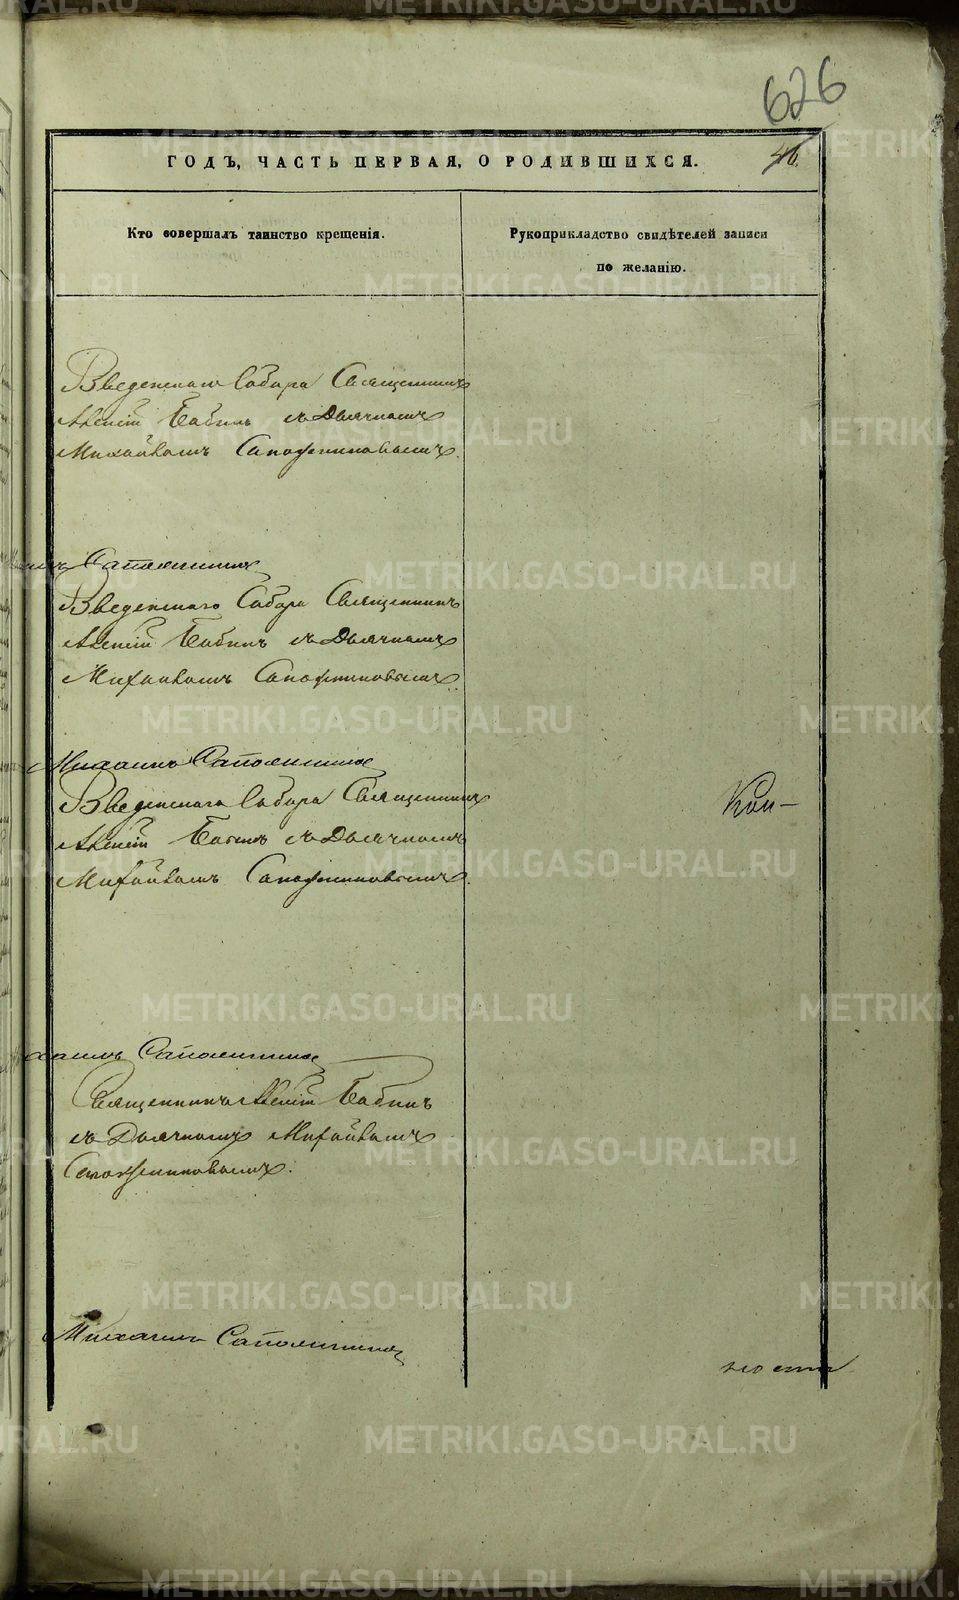 626
46.
ГОДЪ, ЧАСТЬ ПЕРВАЯ, О РОДИВШИХСЯ.
Кто совершалъ таинство крещенія.
Рукоприкладство свидѣтелей записи
по желанію.
Введенскаго Собора Священникъ
Алексѣй Бабинъ съ Дьячкомъ
Михайломъ Сапожниковымъ.
Введенскаго Собора Священникъ
Алексѣй Бабинъ съ Дьячкомъ
Михайломъ Сапожниковымъ.
Михаилъ
Введенскаго Собора Священникъ
Алексѣй Бабинъ съ Дьячкомъ
Михайломъ Сапожниковымъ.
Священникъ Алексѣй Бабинъ
съ Дьячкомъ Михайломъ
Сапожниковымъ.
Михаилъ
METRIKI.GASO-URAL.RU